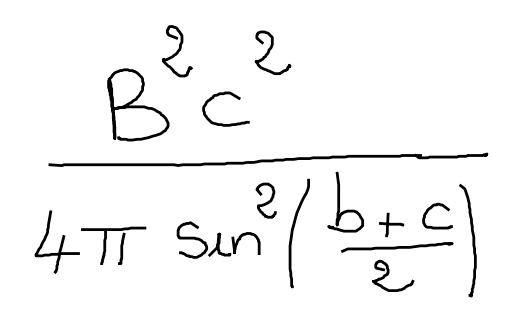 \frac{B^2 c^2}{4\pi \sin^2\left(\frac{b+c}{2}\right)}